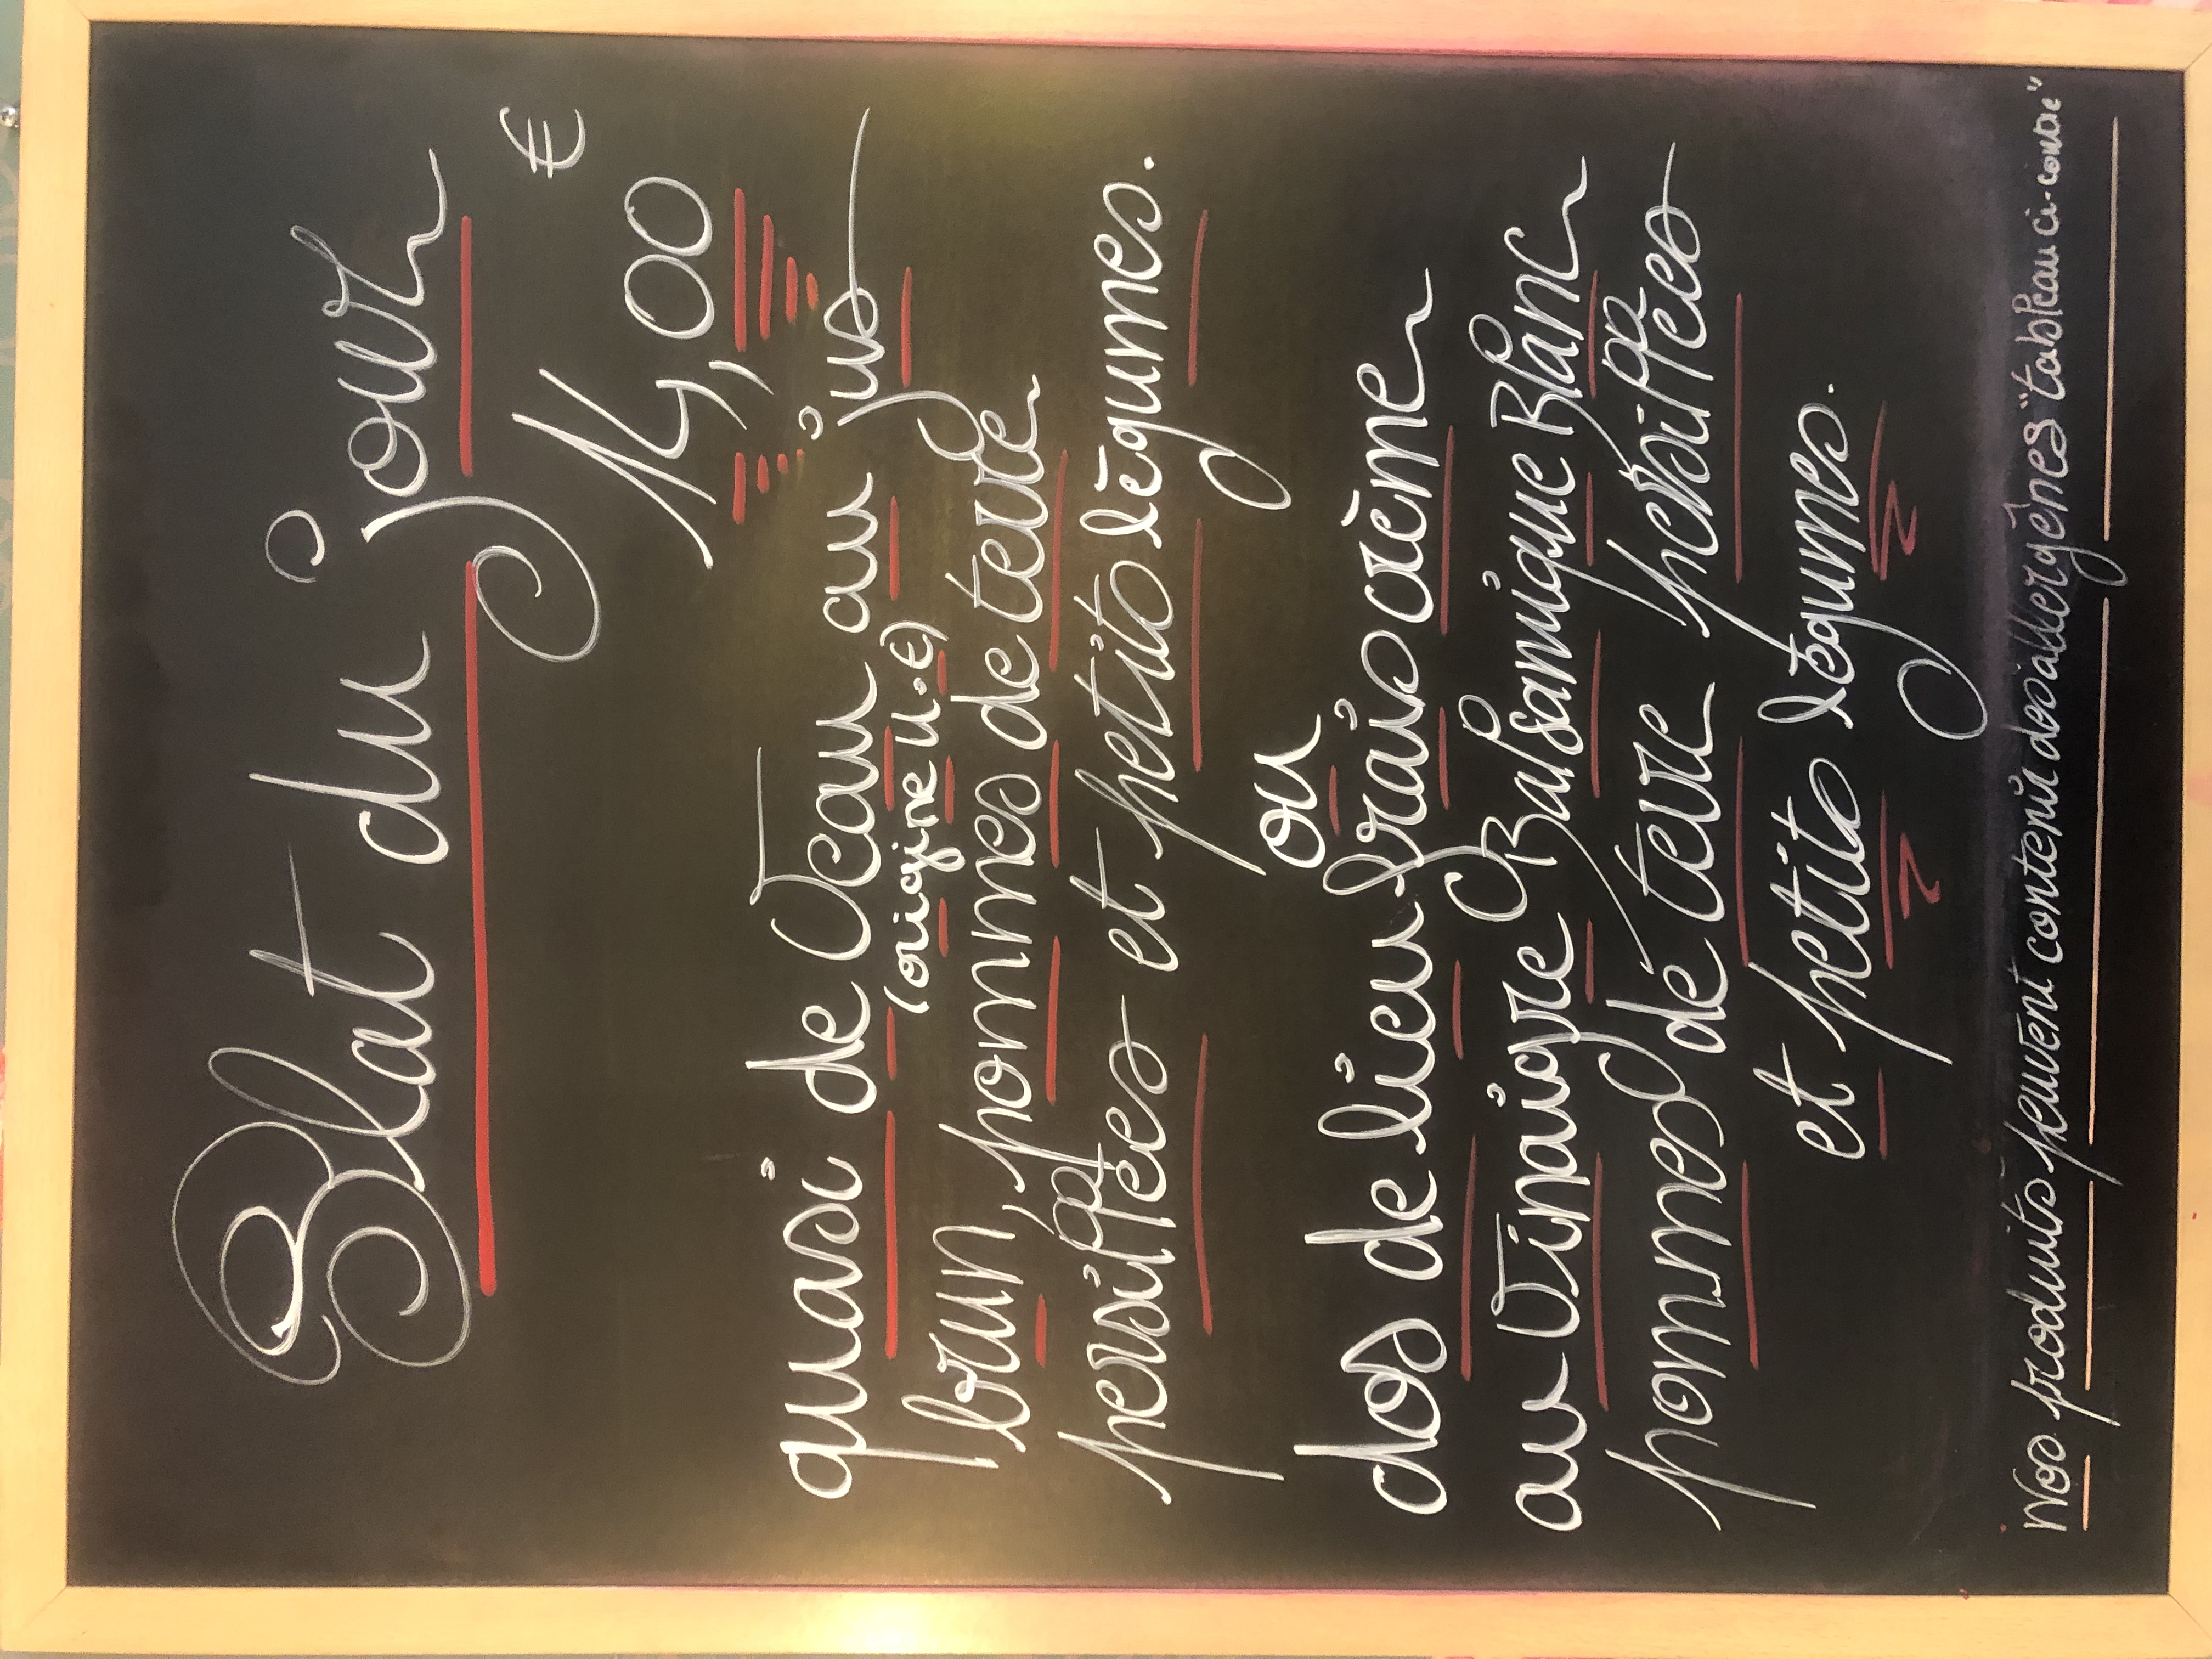 Plat du jour
14,00 €
quasi de Veau au jus
(origine u.e)
brun, pommes de terre
persillées et petits légumes.
ou
dos de lieu frais crème
au Vinaigre Balsamique Blanc
pommes de terre persillées
et petits légumes.
Nos produits peuvent contenir des allergènes "tableau ci-contre"